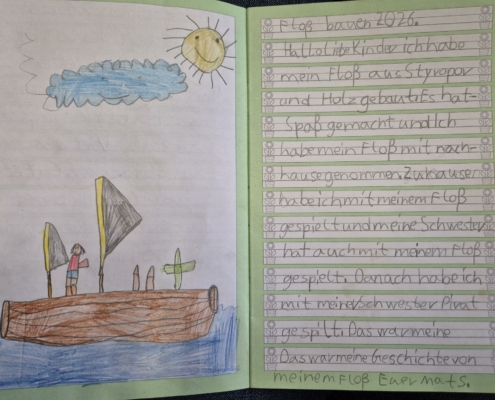 Floß bauen 2026.
Hallo Liebe Kinder ich habe
mein Floß aus Styropor
und Holz gebaut. Es hat
Spaß gemacht und Ich
habe mein Floß mit nach-
hause genommen. Zuhause
habe ich mit meinem Floß
gespielt und meine Schwester
hat auch mit meinem Floß
gespielt. Danach habe ich
mit meiner Schwester Pirat
gespilt. Das war meine
Das war meine Geschichte von
meinem Floß Euer Mats.